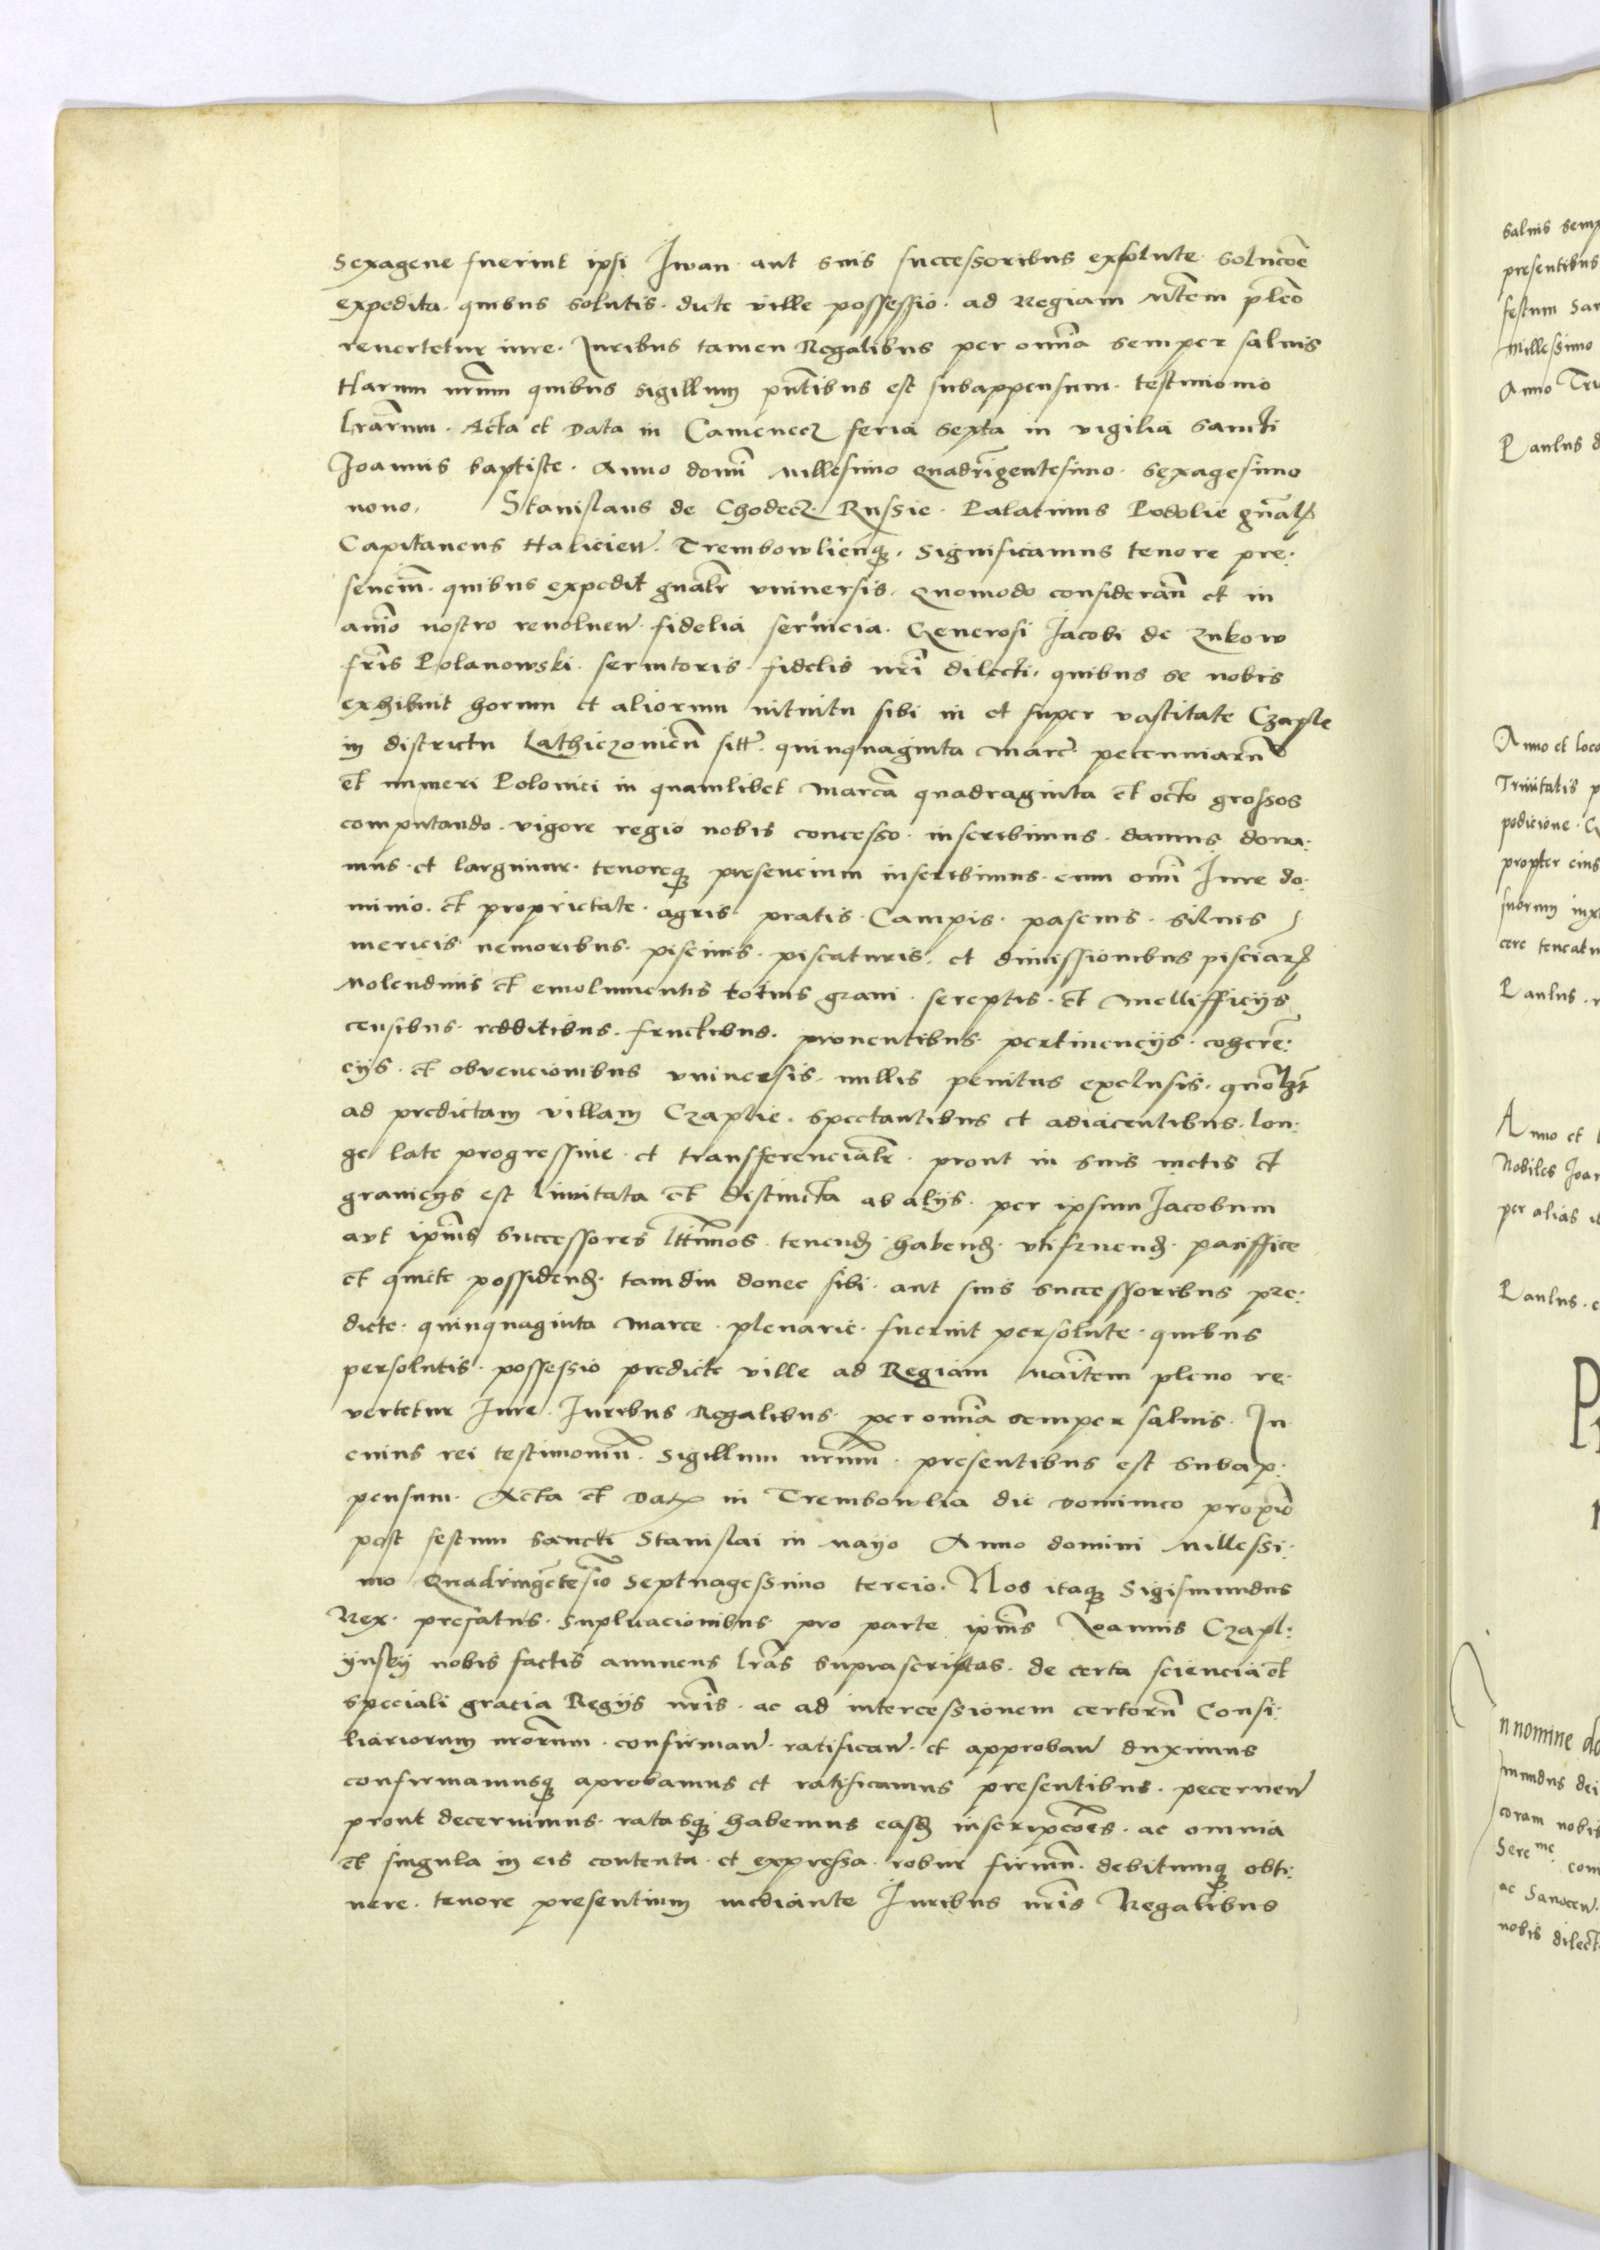 sexagene fuerint ipsi Iwan aut suis successoribus exsolute solucõe
expedita. quibus solutis. dicte ville possessio. ad Regiam Mtem pleo
revertetur iure. Iuribus tamen Regalibus per omĩa semper salvis
Harum nrũm quibus sigillum pñtibus est subappensum. testimonio
lrãrum. Acta et Data in Camenecz feria sexta in vigilia sancti
Joannis baptiste. Anno domĩ Millesimo Quadrĩgentesimo. sexagesimo
nono. Stanislaus de Chodecz. Russie. Palatinus Podolie gñalis
Capitaneus Halicien. Trembowlienq. significamus tenore pre:
senciũ. quibus expedit gñalr universis. Quomodo considerañ et in
aĩmo nostro revolven. fidelia servicia. Generosi Jacobi de Zukow
fris Polanowski. servitoris fidelis nrĩ dilecti. quibus se nobis
exhibuit horum et aliorum intuitu sibi in et super vastitate Czaple
in districtu Lathiczovieñ sitt. quinquaginta Marc. pecuniarũ
et numeri Polonici in quamlibet Marcã quadraginta et octo grossos
computando. vigore regio nobis concesso. inscribimus. damus dona:
mus. et largimur. tenoreq presencium inscribimus. cum omĩ Iure do:
minio. et proprietate. agris pratis. Campis. pascuis. silvis
mericis nemoribus. piscinis. piscaturis. et dimissionibus pisciarum
Molendinis et emolumentis totius grani. sereptis. et Mellifficijs
censibus. redditibus. fructibus. proventibus. pertinencijs. coherẽ:
cijs. et obvencionibus universis. nullis penitus exclusis. quõlzt
ad predictam villam Czaplie. spectantibus et adiacentibus. lon:
ge late progressive. et transferencialr. prout in suis metis et
granicijs est limitata et distincta ab alijs. per ipsum Jacobum
aut ipĩus successores lttimos. tenend. habend. utifruend. paciffice
et quiete possidend. tamdiu donec sibi. aut suis successoribus pre:
dicte. quinquaginta Marce. plenarie. fuerint persolute. quibus
persolutis. possessio predicte ville ad Regiam Maĩtem pleno re:
vertetur Iure. Iuribus Regalibus. per omĩa semper salvis. In
cuius rei testimoniũ. Sigillum nrũm. presentibus est subap:
pensum. Acta et Dat in Trembowlia die Dominico proxĩo
post festum Sancti Stanislai in Mayo Anno domini Millessi:
mo Quadringẽtesĩo Septuagessimo tercio. Nos itaq Sigismundus
Rex. prefatus. suplicacionibus pro parte ipĩus Joannis Czapl:
ijnsky nobis factis annuens lrãs suprascriptas. de certa sciencia et
speciali gracia Regijs nrĩs. ac ad intercessionem certorũ Consi:
liariorum nrõrum. confirman. ratifican. et approban duximus
confirmamusq aprobamus et ratificamus presentibus. Decernen
prout decernimus. ratasq habemus easd inscripcões. ac omnia
et singula in eis contenta et expressa. robur firmũ. debitumq obti:
nere. tenore presentium mediante Iuribus nrĩs Regalibus
salvis semp
presentibus
festum San
Millessimo
Anno
Paulus d
Anno et loco
Trinitatis p
podicione. G
propter eius
suorum iux
cere teneatu
Paulus.
Anno et l
Nobiles Joan
per alias
Paulus. c
n nomine do
smundus dei
coram nobis
Sere me com
ac Sanocen.
nobis dilect